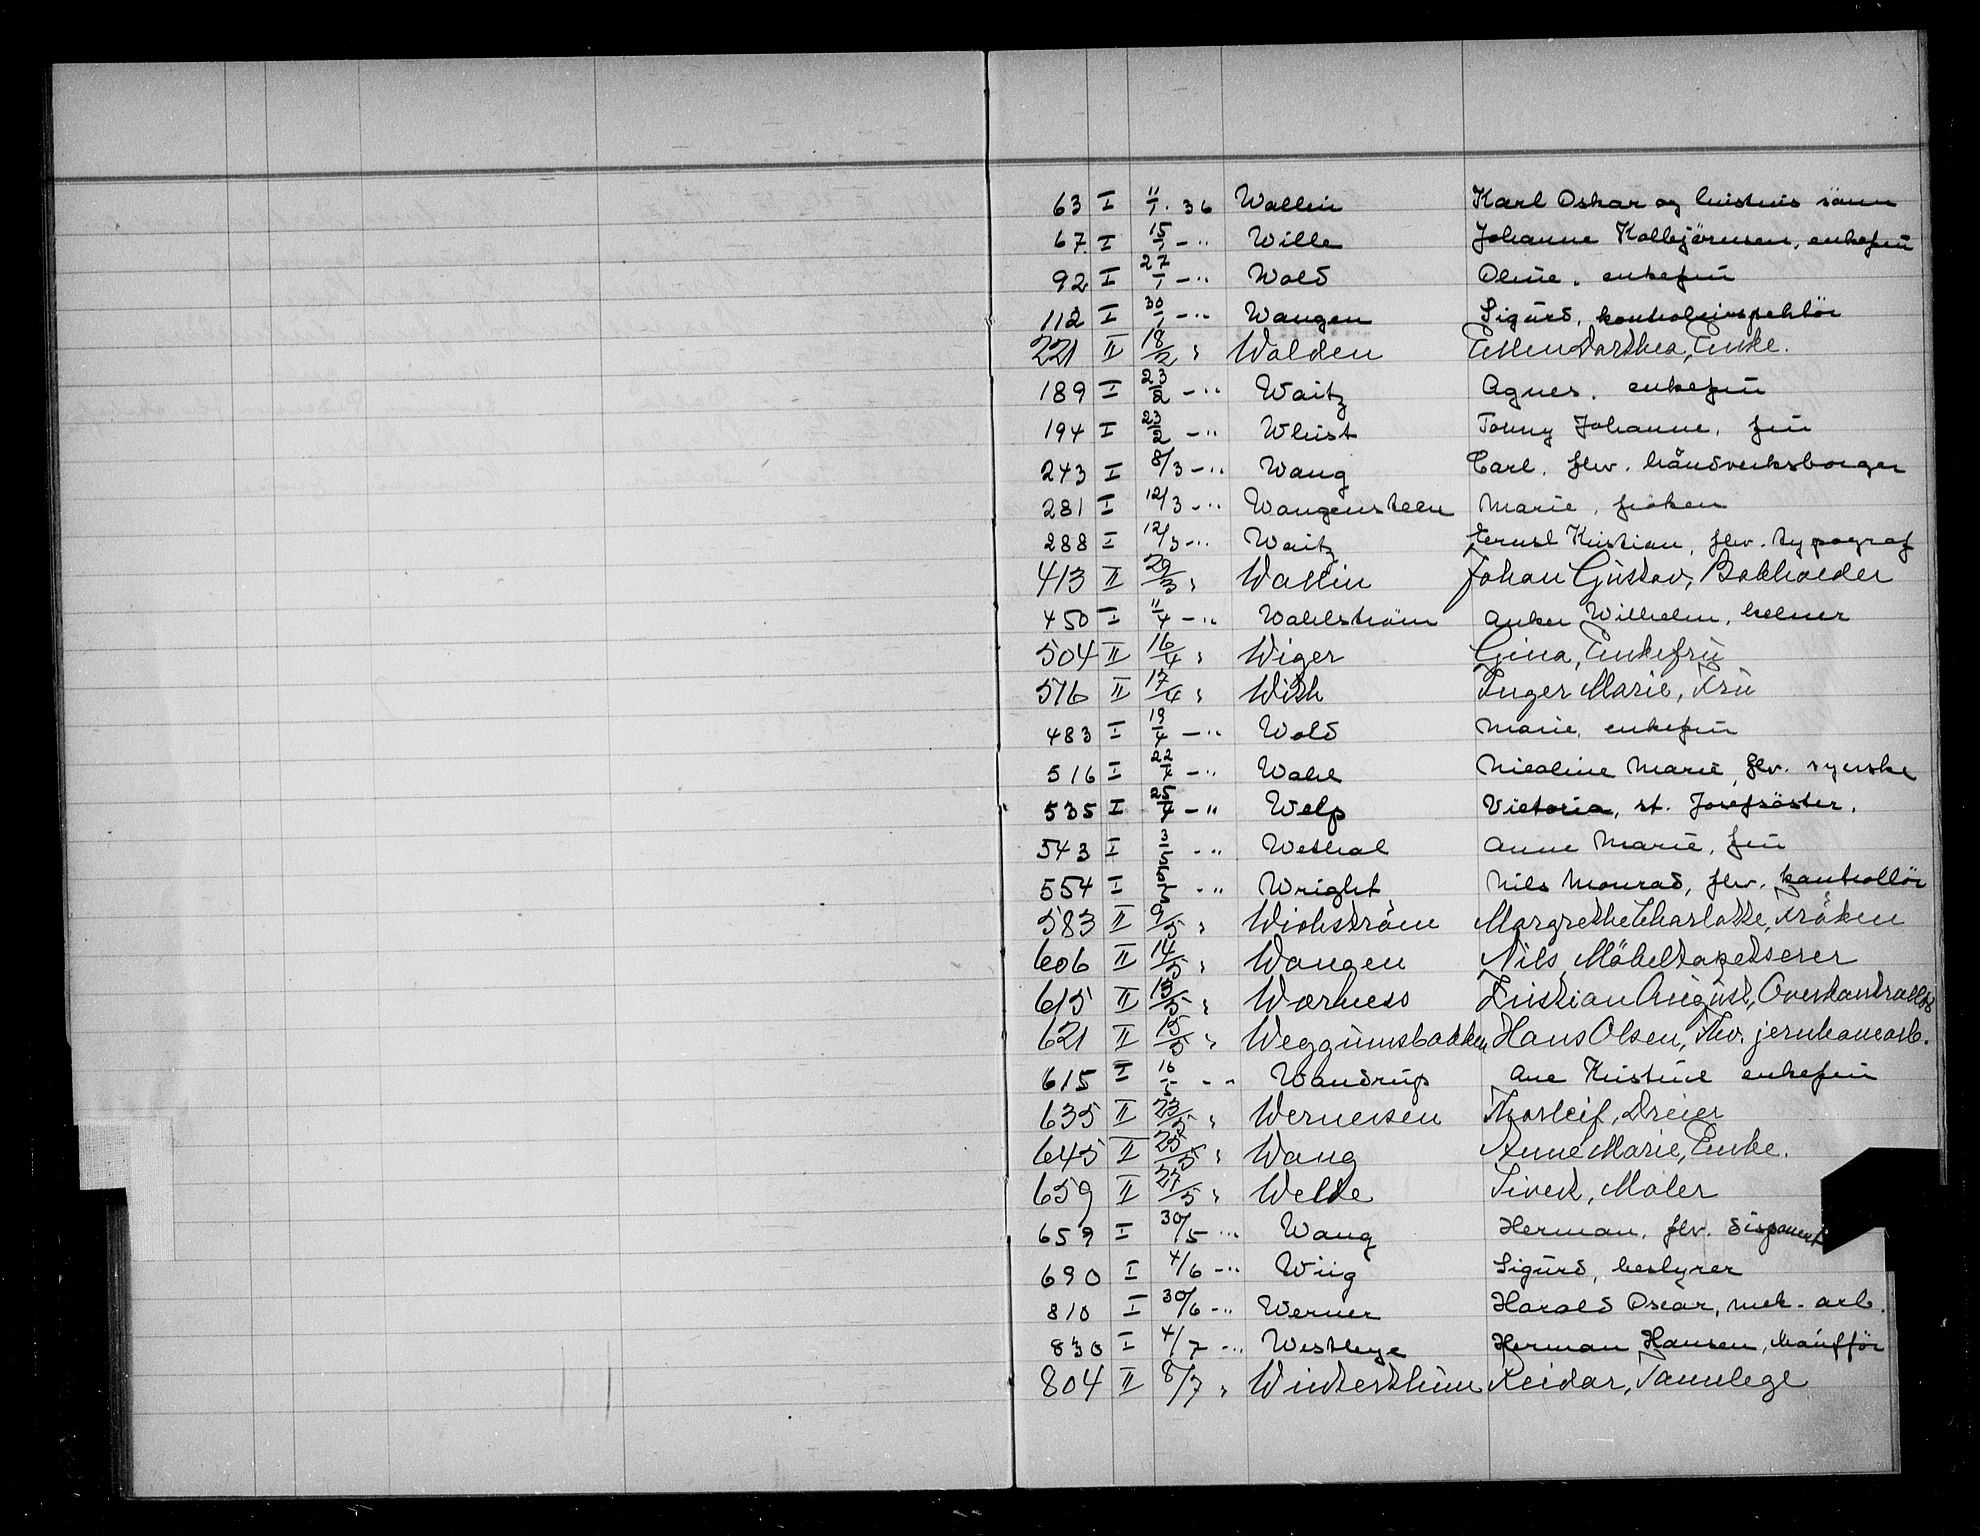 63 I 11/1 . 36 Wallin Karl Oskar og hustrus sönn
67 I 15/1 - " Wille Johanne Kolbjörnsen, enkefru
92 I 27/1 - " Wold Oline, enkefru
112 I 30/1 - " Wangen Sigurd, kontrolinspektör
221 II 18/2 " Walden Ellen Dorthea, Enke.
189 I 23/2 - " Waitz Agnes, enkefru
194 I 23/2 - " Whist Tonny Johanne, fru
243 I 8/3 - " Wang Carl, fhv. håndverksborger
281 I 12/3 - " Wangensteen Marie, fröken
288 I 12/3 - " Waitz Ernst Kristian, fhv. typograf
413 II 29/3 " Wallin Johan Gustav, Bokholder
450 I 11/4 - " Wahlström Anker Wilhelm, kelner
504 II 16/4 " Wiger Gina, Enkefru
516 II 17/4 " With Inger Marie, Fru
483 I 19/4 - " Wold Marie, enkefru
516 I 22/4 - " Wahl Nicoline Marie, fhv. syerske
535 I 25/4 - " Welp Victoria, st. Josefsöster.
543 I 3/5 - " Wethal Anne Marie, fru
554 I /5 - " Wright Nils Monrad, fhv. kontrollör
583 II 9/5 " Wichström Margrethe Charlotte, Fröken
606 II 14/5 " Wangen Nils, Möbeltapetserer
615 II 15/5 " Wærness Kristian August, Overkontrollör
621 II 15/5 " Weggumsbakken Hans Olsen, Fhv. jernbanearb.
615 I 16/5 - " Wandrup Ane Kristine enkefru
635 II 23/5 " Wernersen Thorleif, Dreier
645 II 25/5 " Wang Anne Marie, Enke.
659 II 27/5 " Welde Sivert, Maler
659 I 30/5 - " Wang Herman, fhv. disponent
690 I 4/6 - " Wiig Sigurd, bestyrer
810 I 30/6 - " Werner Harald Oscar, mek. arb.
830 I 4/7 - " Westbye Herman Hansen, chauffør
804 II 8/7 " Winterthun Reidar, Tannlege